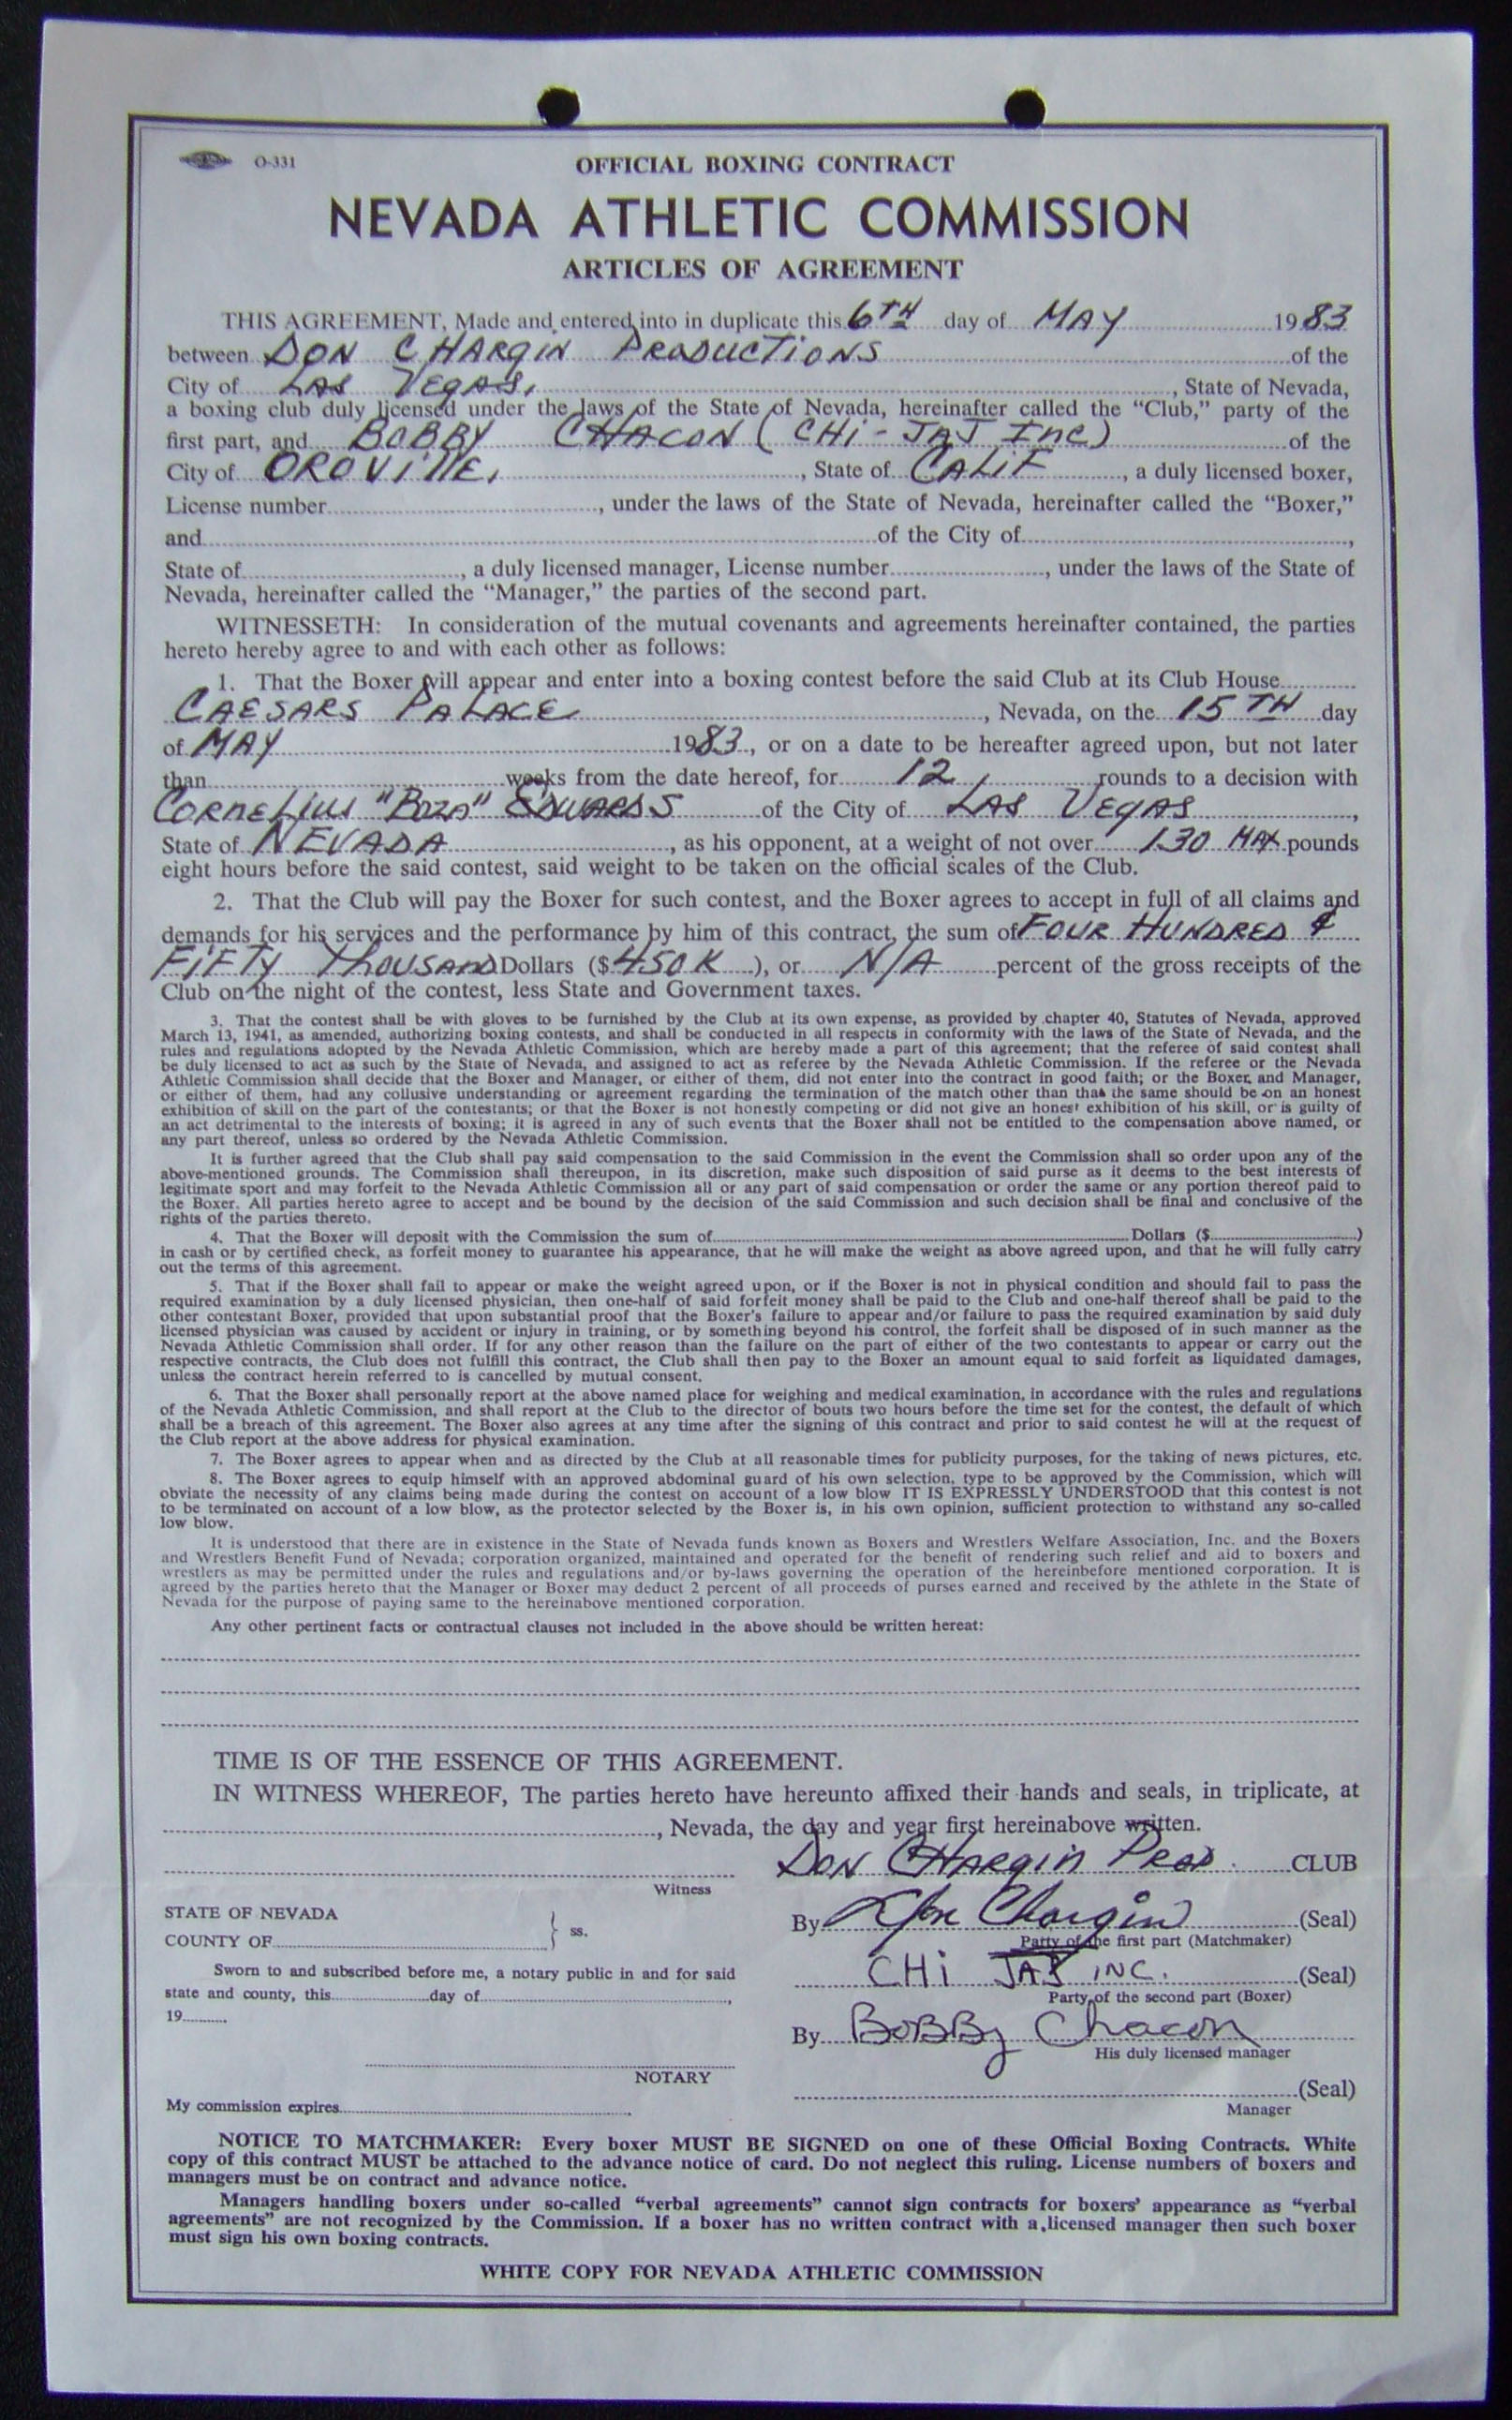 O-331
OFFICIAL BOXING CONTRACT
NEVADA ATHLETIC COMMISSION
ARTICLES OF AGREEMENT
THIS AGREEMENT, Made and entered into in duplicate this 6TH day of MAY 1983
between DON CHARGIN PRODUCTIONS of the
City of LAS VEGAS, , State of Nevada,
a boxing club duly licensed under the laws of the State of Nevada, hereinafter called the “Club,” party of the
first part, and BOBBY CHACON (CHi-JAJ Inc) of the
City of OROVillE, , State of CALiF , a duly licensed boxer,
License number , under the laws of the State of Nevada, hereinafter called the “Boxer,”
and of the City of ,
State of , a duly licensed manager, License number , under the laws of the State of
Nevada, hereinafter called the “Manager,” the parties of the second part.
WITNESSETH: In consideration of the mutual covenants and agreements hereinafter contained, the parties
hereto hereby agree to and with each other as follows:
1. That the Boxer will appear and enter into a boxing contest before the said Club at its Club House
CAESARS PALACE , Nevada, on the 15TH day
of MAY 1983, or on a date to be hereafter agreed upon, but not later
than weeks from the date hereof, for 12 rounds to a decision with
CORNELiUS "BOZA" EDWARDS of the City of LAS VEGAS ,
State of NEVADA , as his opponent, at a weight of not over 130 MAX pounds
eight hours before the said contest, said weight to be taken on the official scales of the Club.
2. That the Club will pay the Boxer for such contest, and the Boxer agrees to accept in full of all claims and
demands for his services and the performance by him of this contract, the sum of FOUR HUNDRED &
FiFTY THOUSAND Dollars ($450K ), or N/A percent of the gross receipts of the
Club on the night of the contest, less State and Government taxes.
3. That the contest shall be with gloves to be furnished by the Club at its own expense, as provided by chapter 40, Statutes of Nevada, approved
March 13, 1941, as amended, authorizing boxing contests, and shall be conducted in all respects in conformity with the laws of the State of Nevada, and the
rules and regulations adopted by the Nevada Athletic Commission, which are hereby made a part of this agreement; that the referee of said contest shall
be duly licensed to act as such by the State of Nevada, and assigned to act as referee by the Nevada Athletic Commission. If the referee or the Nevada
Athletic Commission shall decide that the Boxer and Manager, or either of them, did not enter into the contract in good faith; or the Boxer and Manager,
or either of them, had any collusive understanding or agreement regarding the termination of the match other than that the same should be on an honest
exhibition of skill on the part of the contestants; or that the Boxer is not honestly competing or did not give an honest exhibition of his skill, or is guilty of
an act detrimental to the interests of boxing; it is agreed in any of such events that the Boxer shall not be entitled to the compensation above named, or
any part thereof, unless so ordered by the Nevada Athletic Commission.
It is further agreed that the Club shall pay said compensation to the said Commission in the event the Commission shall so order upon any of the
above-mentioned grounds. The Commission shall thereupon, in its discretion, make such disposition of said purse as it deems to the best interests of
legitimate sport and may forfeit to the Nevada Athletic Commission all or any part of said compensation or order the same or any portion thereof paid to
the Boxer. All parties hereto agree to accept and be bound by the decision of the said Commission and such decision shall be final and conclusive of the
rights of the parties thereto.
4. That the Boxer will deposit with the Commission the sum of Dollars ($ )
in cash or by certified check, as forfeit money to guarantee his appearance, that he will make the weight as above agreed upon, and that he will fully carry
out the terms of this agreement.
5. That if the Boxer shall fail to appear or make the weight agreed upon, or if the Boxer is not in physical condition and should fail to pass the
required examination by a duly licensed physician, then one-half of said forfeit money shall be paid to the Club and one-half thereof shall be paid to the
other contestant Boxer, provided that upon substantial proof that the Boxer's failure to appear and/or failure to pass the required examination by said duly
licensed physician was caused by accident or injury in training, or by something beyond his control, the forfeit shall be disposed of in such manner as the
Nevada Athletic Commission shall order. If for any other reason than the failure on the part of either of the two contestants to appear or carry out the
respective contracts, the Club does not fulfill this contract, the Club shall then pay to the Boxer an amount equal to said forfeit as liquidated damages,
unless the contract herein referred to is cancelled by mutual consent.
6. That the Boxer shall personally report at the above named place for weighing and medical examination, in accordance with the rules and regulations
of the Nevada Athletic Commission, and shall report at the Club to the director of bouts two hours before the time set for the contest, the default of which
shall be a breach of this agreement. The Boxer also agrees at any time after the signing of this contract and prior to said contest he will at the request of
the Club report at the above address for physical examination.
7. The Boxer agrees to appear when and as directed by the Club at all reasonable times for publicity purposes, for the taking of news pictures, etc.
8. The Boxer agrees to equip himself with an approved abdominal guard of his own selection, type to be approved by the Commission, which will
obviate the necessity of any claims being made during the contest on account of a low blow IT IS EXPRESSLY UNDERSTOOD that this contest is not
to be terminated on account of a low blow, as the protector selected by the Boxer is, in his own opinion, sufficient protection to withstand any so-called
low blow.
It is understood that there are in existence in the State of Nevada funds known as Boxers and Wrestlers Welfare Association, Inc. and the Boxers
and Wrestlers Benefit Fund of Nevada; corporation organized, maintained and operated for the benefit of rendering such relief and aid to boxers and
wrestlers as may be permitted under the rules and regulations and/or by-laws governing the operation of the hereinbefore mentioned corporation. It is
agreed by the parties hereto that the Manager or Boxer may deduct 2 percent of all proceeds of purses earned and received by the athlete in the State of
Nevada for the purpose of paying same to the hereinabove mentioned corporation.
Any other pertinent facts or contractual clauses not included in the above should be written hereat:
TIME IS OF THE ESSENCE OF THIS AGREEMENT.
IN WITNESS WHEREOF, The parties hereto have hereunto affixed their hands and seals, in triplicate, at
, Nevada, the day and year first hereinabove written.
DON CHARGiN PROD. CLUB
Witness
By Don Chargin (Seal)
Party of the first part (Matchmaker)
STATE OF NEVADA
COUNTY OF } ss.
CHi JAJ INC. (Seal)
Party of the second part (Boxer)
Sworn to and subscribed before me, a notary public in and for said
state and county, this day of ,
19
By BOBBy Chacon
His duly licensed manager
NOTARY
(Seal)
Manager
My commission expires
NOTICE TO MATCHMAKER: Every boxer MUST BE SIGNED on one of these Official Boxing Contracts. White
copy of this contract MUST be attached to the advance notice of card. Do not neglect this ruling. License numbers of boxers and
managers must be on contract and advance notice.
Managers handling boxers under so-called “verbal agreements” cannot sign contracts for boxers' appearance as “verbal
agreements” are not recognized by the Commission. If a boxer has no written contract with a licensed manager then such boxer
must sign his own boxing contracts.
WHITE COPY FOR NEVADA ATHLETIC COMMISSION